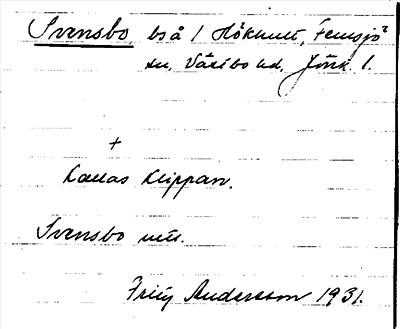 Svensbo, bs å / Hökhult, Femsjö
sn, Västbo hd, Jönk. l.
+
Kallas Klippan.
Svensbo utt.
Frity Andersson 1931.